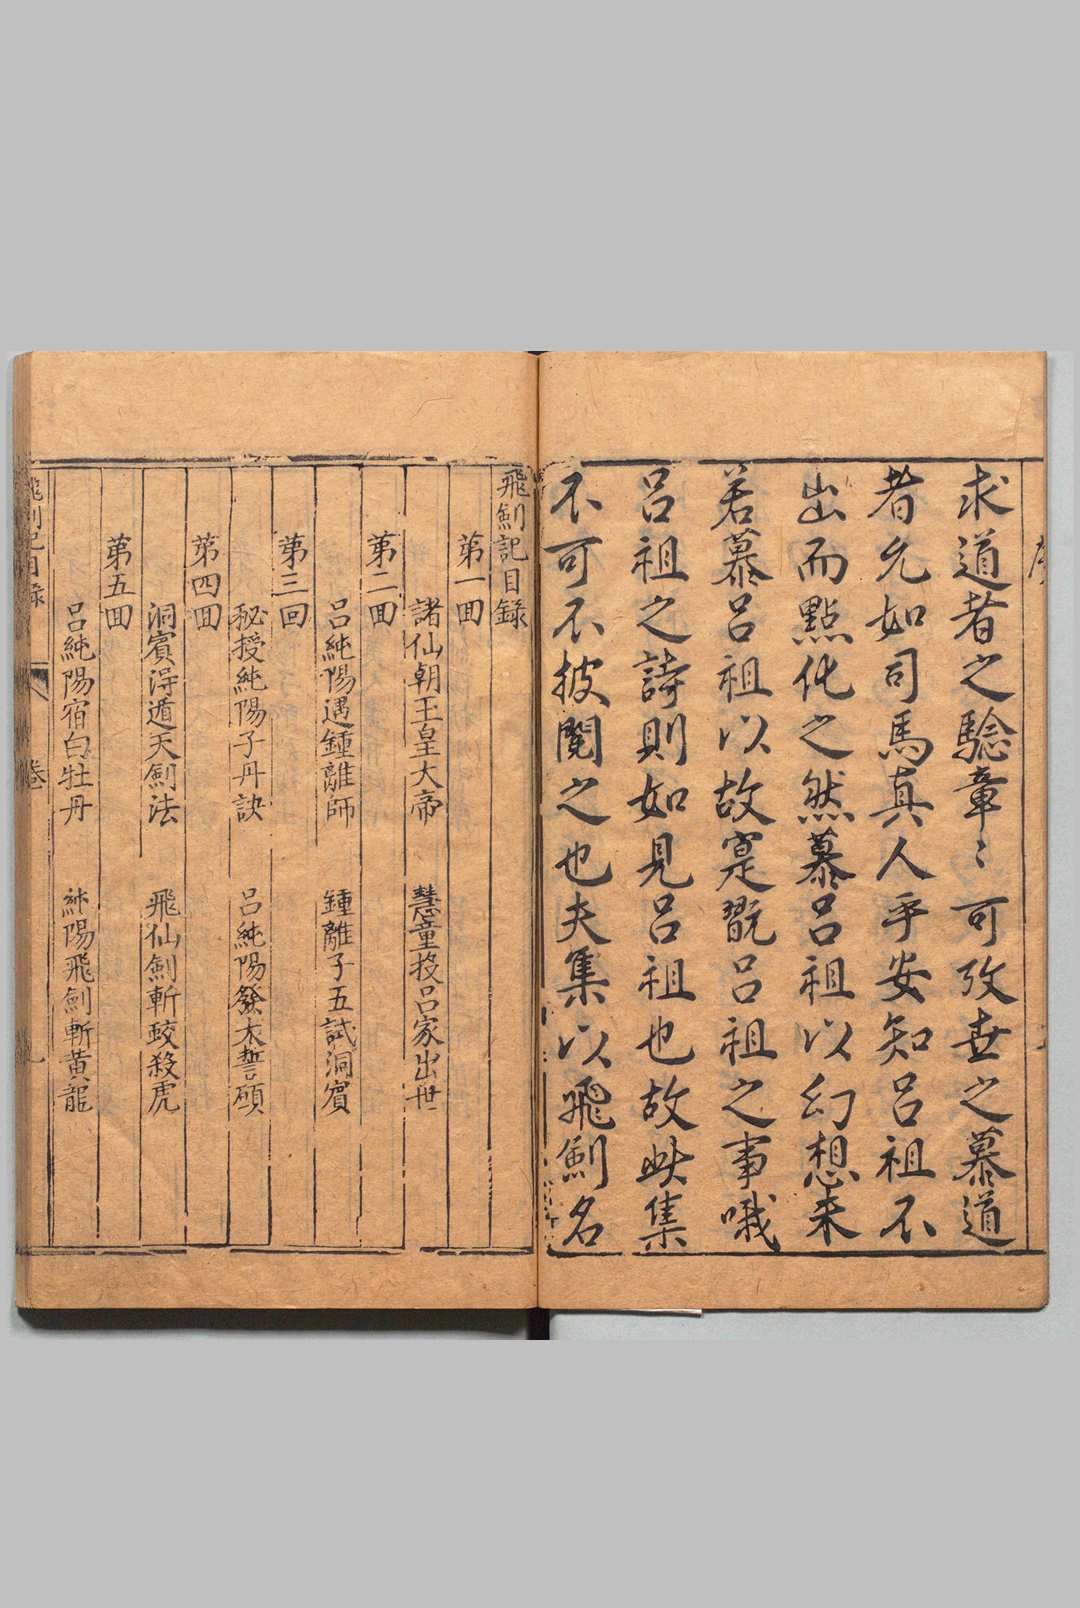 序
求道者之驗章〻可攷世之慕道
者允如司馬真人乎安知呂祖不
出而點化之然慕呂祖以幻想未
若慕呂祖以故寔翫呂祖之事哦
呂祖之詩則如見呂祖也故此集
不可不披閱之也夫集以飛劍名
飛劍記目錄
第一囬
諸仙朝王皇大帝　慧童投呂家出世
第二囬
呂純陽遇鍾離師　鍾離子五試洞賓
第三回
秘授純陽子丹訣　呂純陽發大誓願
第四囬
洞賓淂遁天劍法　飛仙劍斬蛟殺虎
第五囬
呂純陽宿白牡丹　純陽飛劍斬黃龍
飛劍記目錄　卷